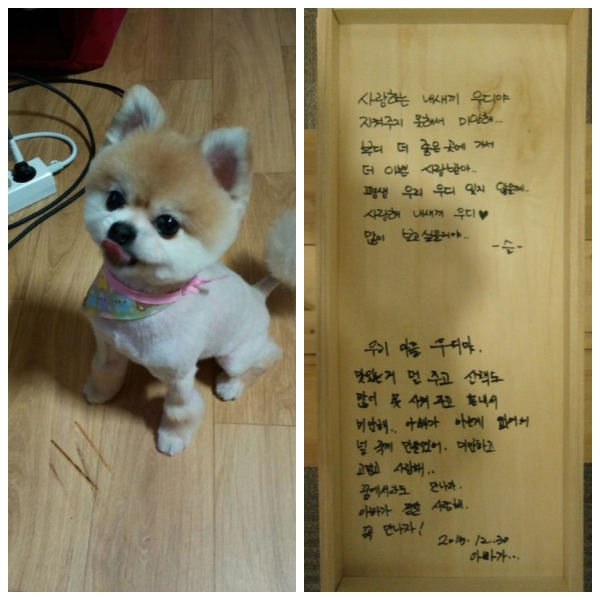 사랑하는 내새끼 우디야
지켜주지 못해서 미안해..
부디 더 좋은곳에 가서
더 이쁨 사랑받아..
평생 우리 우디 잊지 않을게..
사랑해 내새끼 우디♥
많이 보고싶을거야..
우리 이쁜 우디야.
맛있는거 먼 주고 산책도
많이 못 시켜 주고 보내서
미안해.. 아빠가 아는게 없어서
널 죽게 만들었어. 미안하고
고맙고 사랑해..
꿈에서라도 만나자.
아빠가 사랑해.
꼭 만나자!
2015.12.30
아빠가..